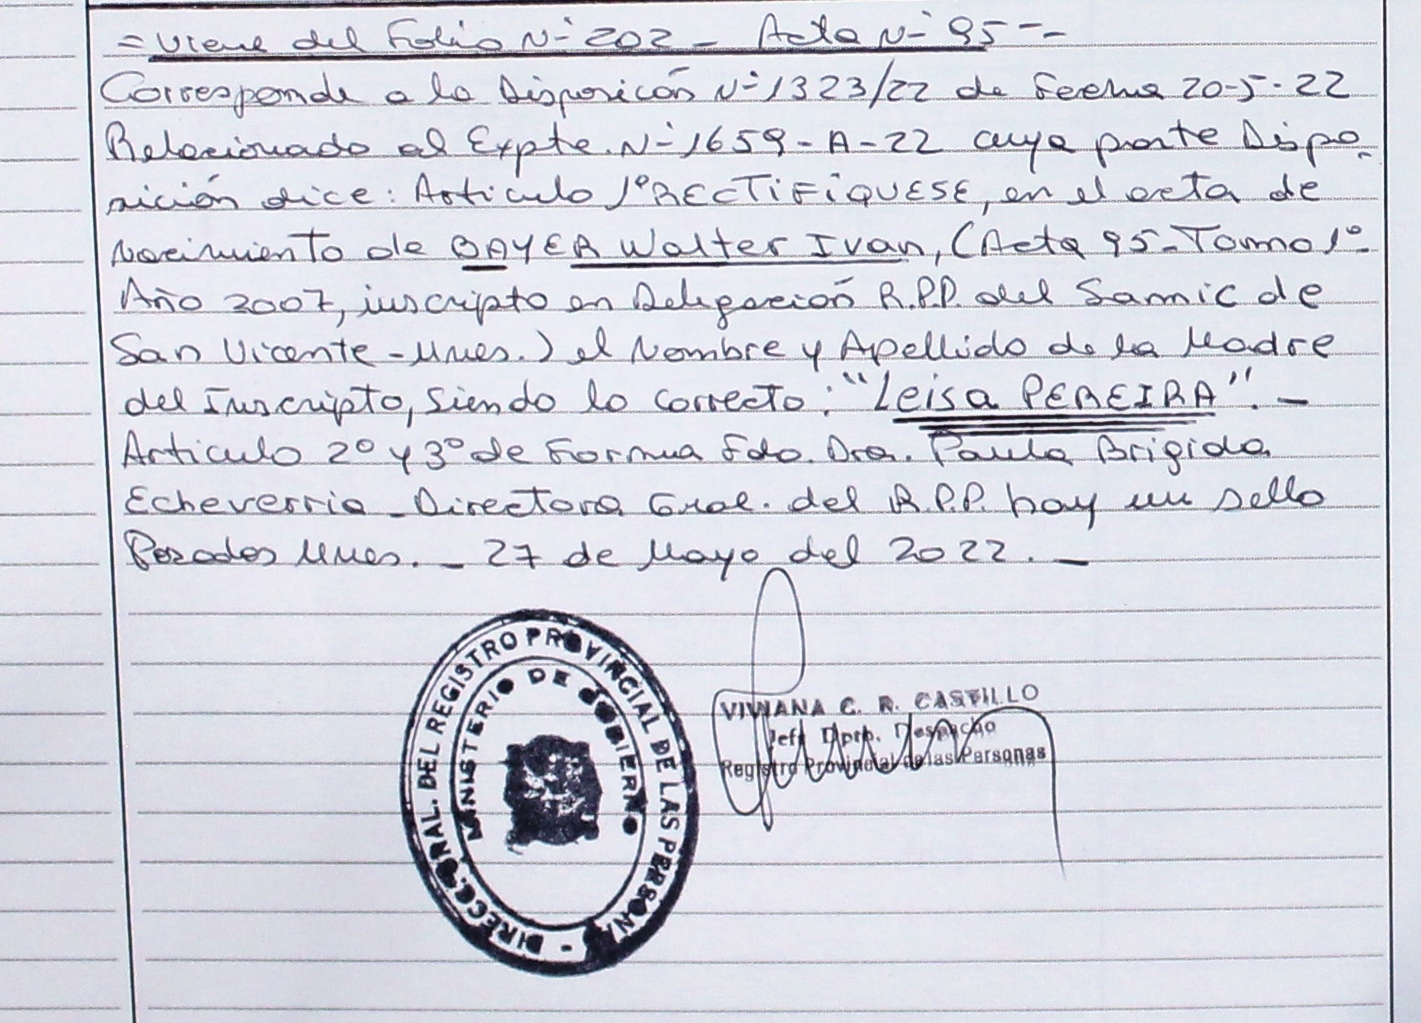 = Viene del Folio N° 202 - Acta N° 95 - -
Corresponde a la Disposición N° 1323/22 de Fecha 20-5-22
Relacionado al Expte. N° 1659-A-22 cuya parte Dispo-
sición dice: Articulo 1° RECTIFIQUESE, en el acta de
Nacimiento de BAYER Walter Ivan, (Acta 95-Tomo 1°-
Año 2007, inscripto en Delegación R.P.P. del Samic de
San Vicente-Mnes.) el Nombre y Apellido de la Madre
del Inscripto, Siendo lo correcto: "Leisa PEREIRA". -
Articulo 2° y 3° de Forma Fdo. Dra. Paula Brigida
Echeverria - Directora Gral. del R.P.P. hay un sello
Posadas Mnes. - 27 de Mayo del 2022. -
DIRECC. GRAL. DEL REGISTRO PROVINCIAL DE LAS PERSONAS -
MINISTERIO DE GOBIERNO
VIVIANA C. R. CASTILLO
Jefe Dpto. Despacho
Registro Provincial de las Personas